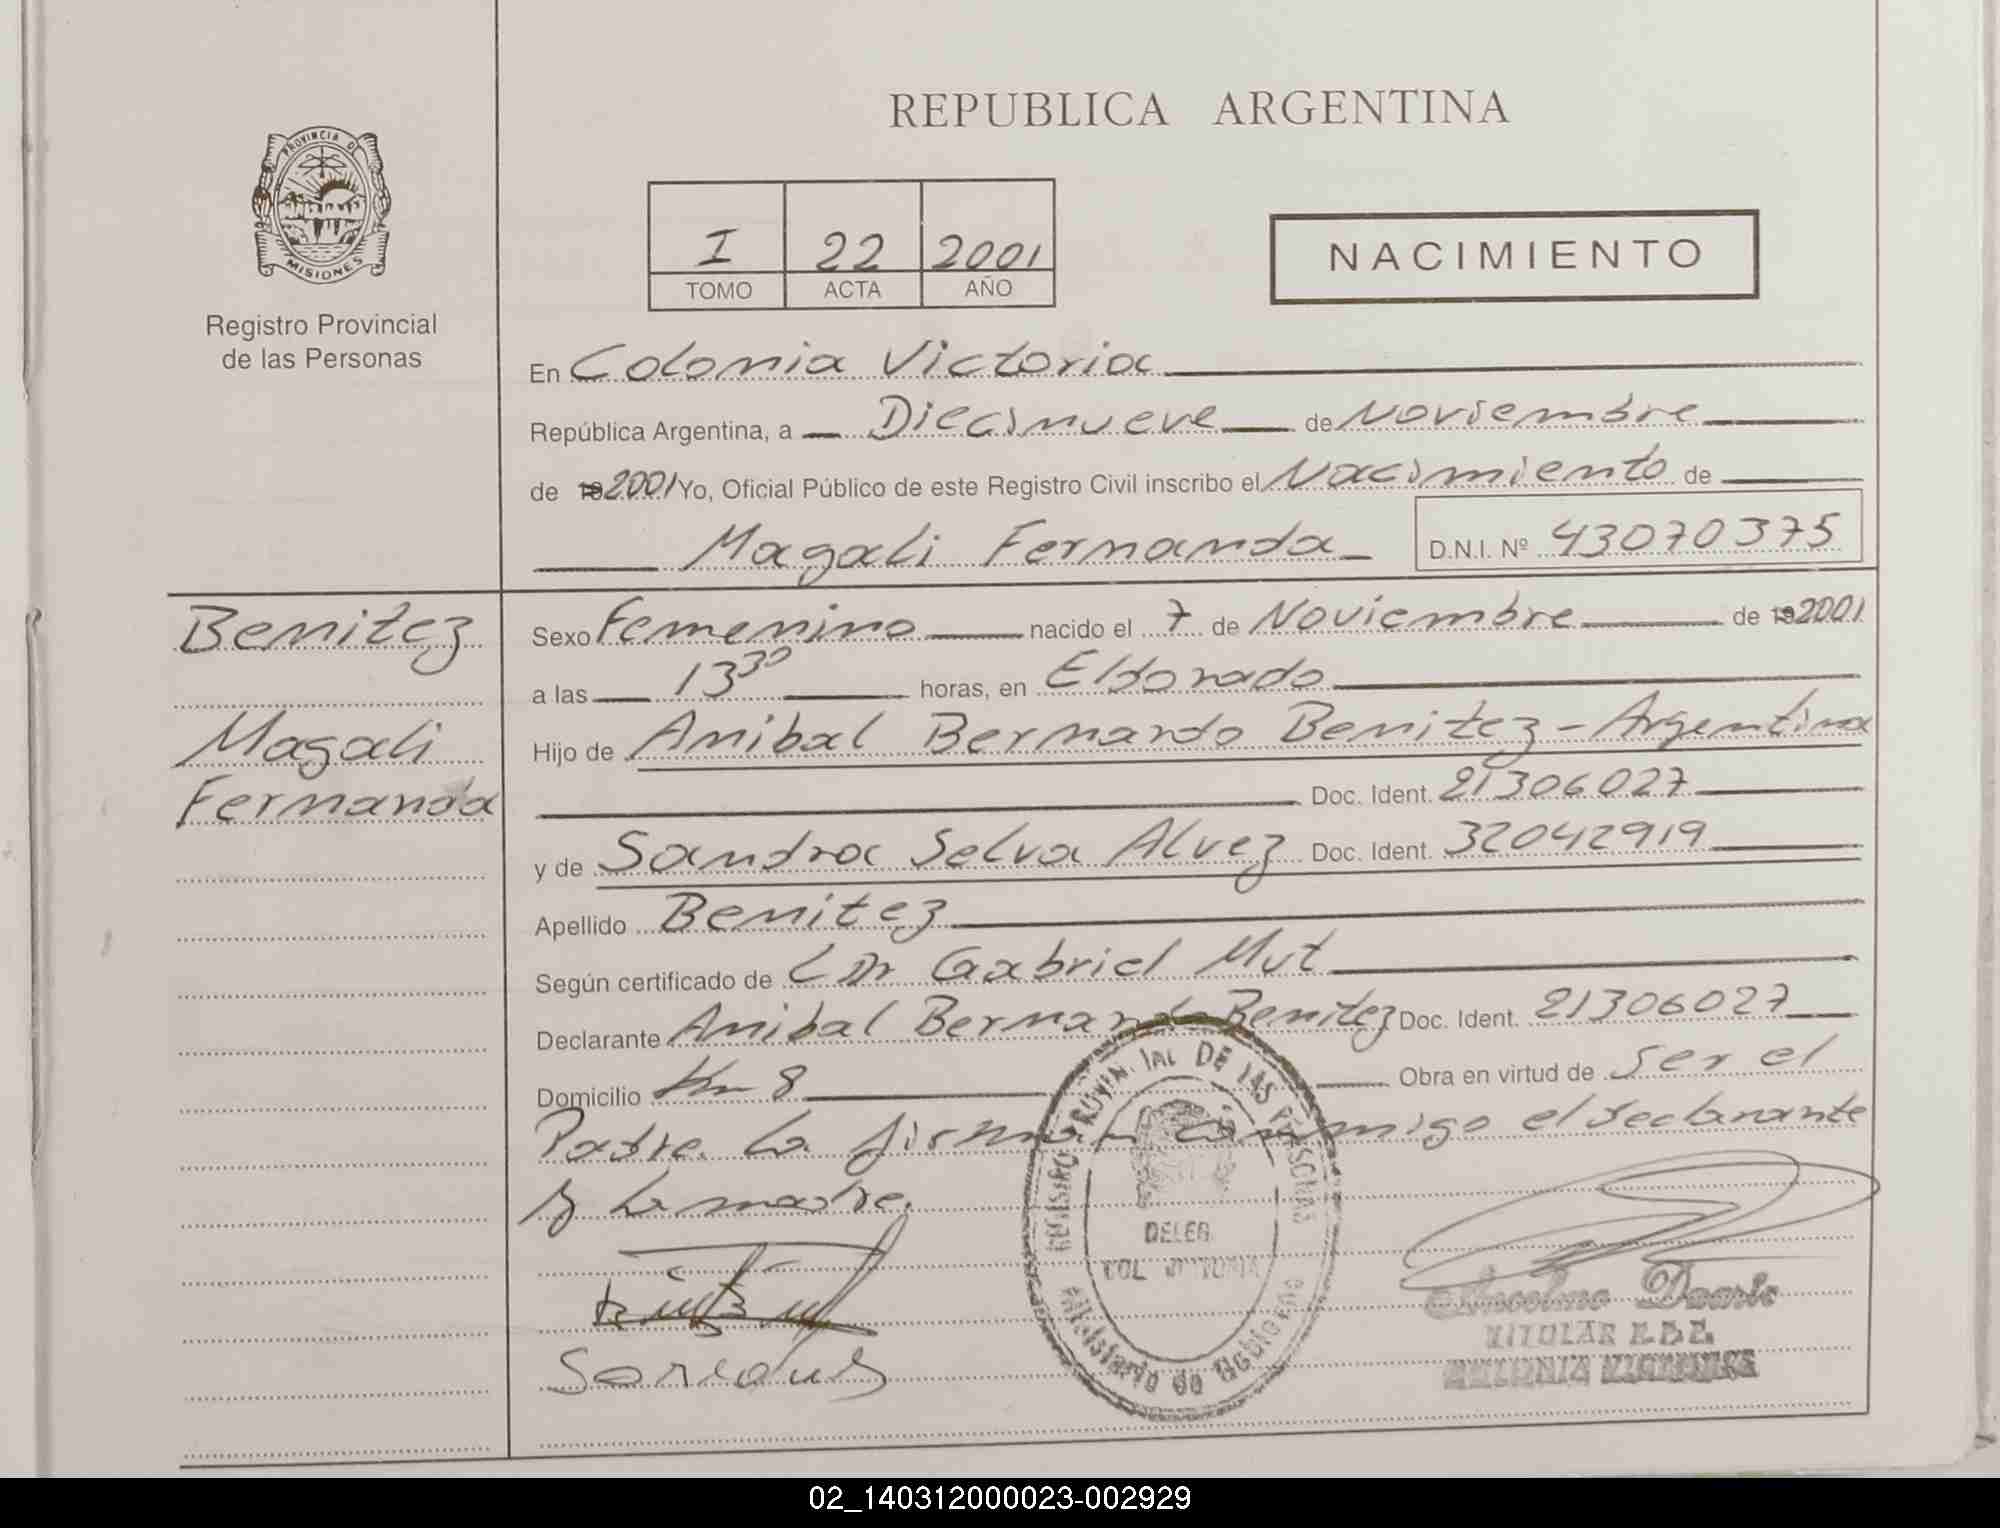 REPUBLICA ARGENTINA
PROVINCIA DE
MISIONES
Registro Provincial
de las Personas
I 22 2001
TOMO ACTA AÑO
NACIMIENTO
En Colonia Victoria
República Argentina, a Diecinueve de Noviembre
de 19 2001 Yo, Oficial Público de este Registro Civil inscribo el Nacimiento de
Magali Fernanda D.N.I. Nº 43070375
Benitez
Magali
Fernanda
Sexo Femenino nacido el 7 de Noviembre de 19 2001
a las 13 30 horas, en Eldorado
Hijo de Anibal Bernardo Benitez - Argentina
Doc. Ident. 21306027
y de Sandra Selva Alvez Doc. Ident. 32042919
Apellido Benitez
Según certificado de Gabriel Mut
Declarante Anibal Bernardo Benitez Doc. Ident. 21306027
Domicilio Km 8 Obra en virtud de ser el
Padre. La firman conmigo el declarante
y la madre.
REGISTRO PROVINCIAL DE LAS PERSONAS
DELEG.
COL VICTORIA
Ministerio de Gobierno
Duarte
TITULAR
02_140312000023-002929